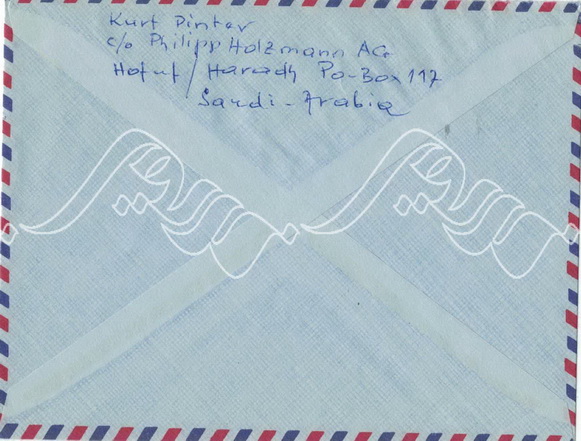 Kurt Pinter
c/o Philipp Holzmann AG
Hofuf / Haradh Po-Box 117
Saudi-Arabia